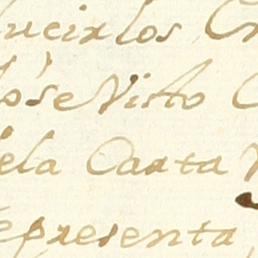 ucirlos,
seVisto
ela Carta
representa